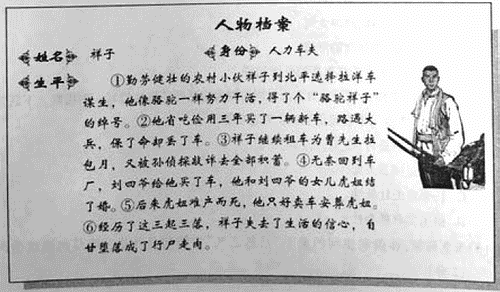 人物档案
姓名 祥子 身份 人力车夫
生平
①勤劳健壮的农村小伙祥子到北平选择拉洋车
谋生，他像骆驼一样努力干活，得了个“骆驼祥子”
的绰号。②他省吃俭用三年买了一辆新车，路遇大
兵，保了命却丢了车。③祥子继续租车为曹先生拉
包月，又被孙侦探敲诈去全部积蓄。④无奈回到车
厂，刘四爷给他买了车，他和刘四爷的女儿虎妞结
了婚。⑤后来虎妞难产而死，他只好卖车安葬虎妞。
⑥经历了这三起三落，祥子失去了生活的信心，自
甘堕落成了行尸走肉。